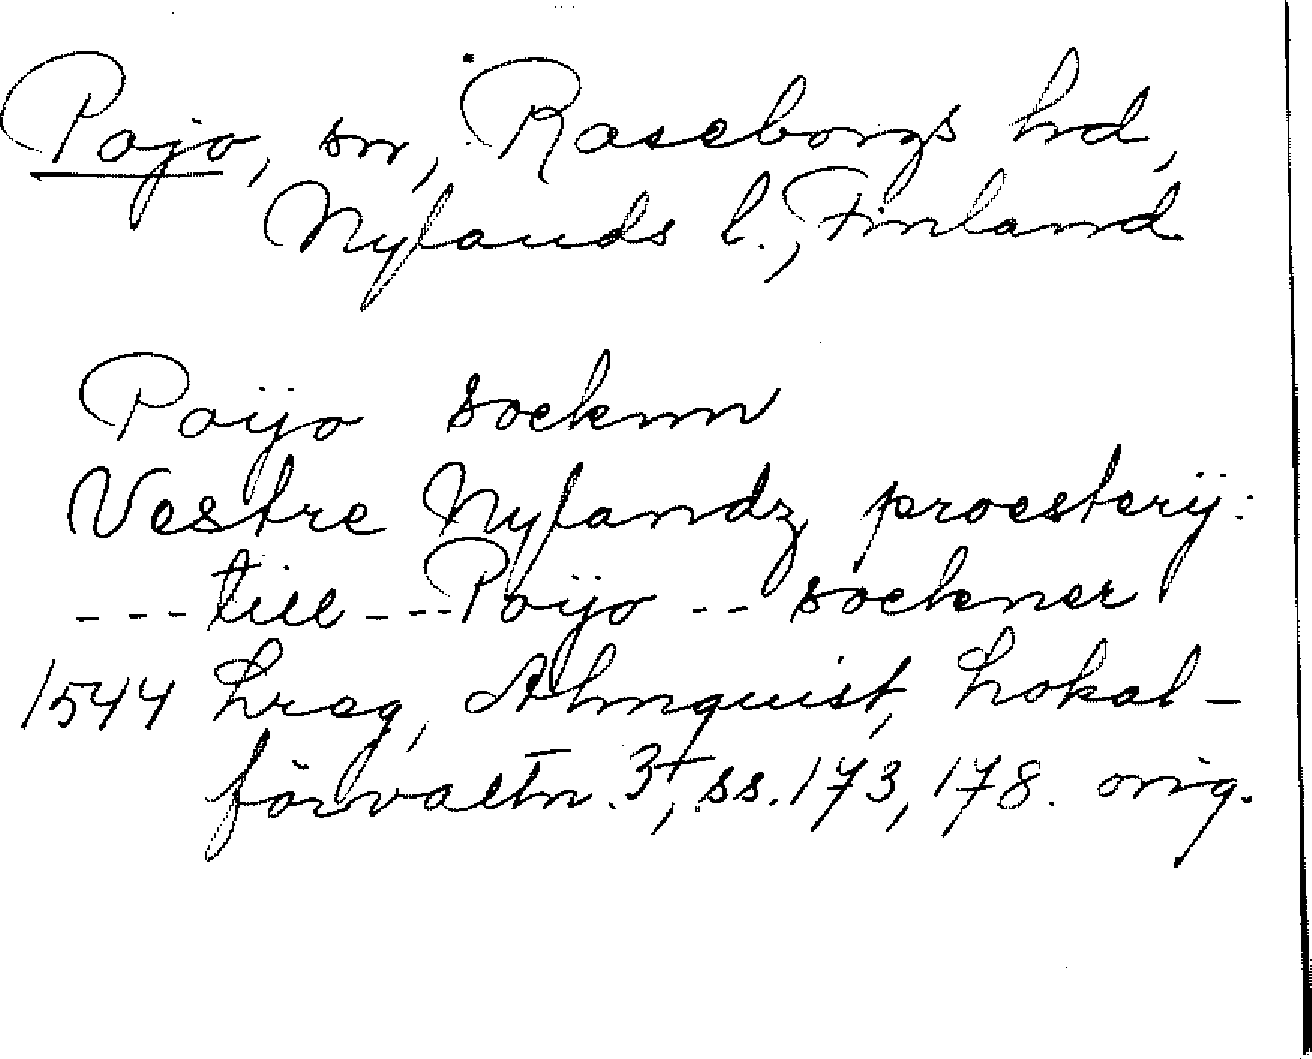 Pojo, sn, Raseborgs hd,
Nylands l., Finland
Poÿo sockenn
Vestre Nylandz proesterÿ:
--- till --- Poÿo -- sockner
1544 Lreg, Almquist, Lokal-
förvaltn. 3†, ss. 173, 178. orig.